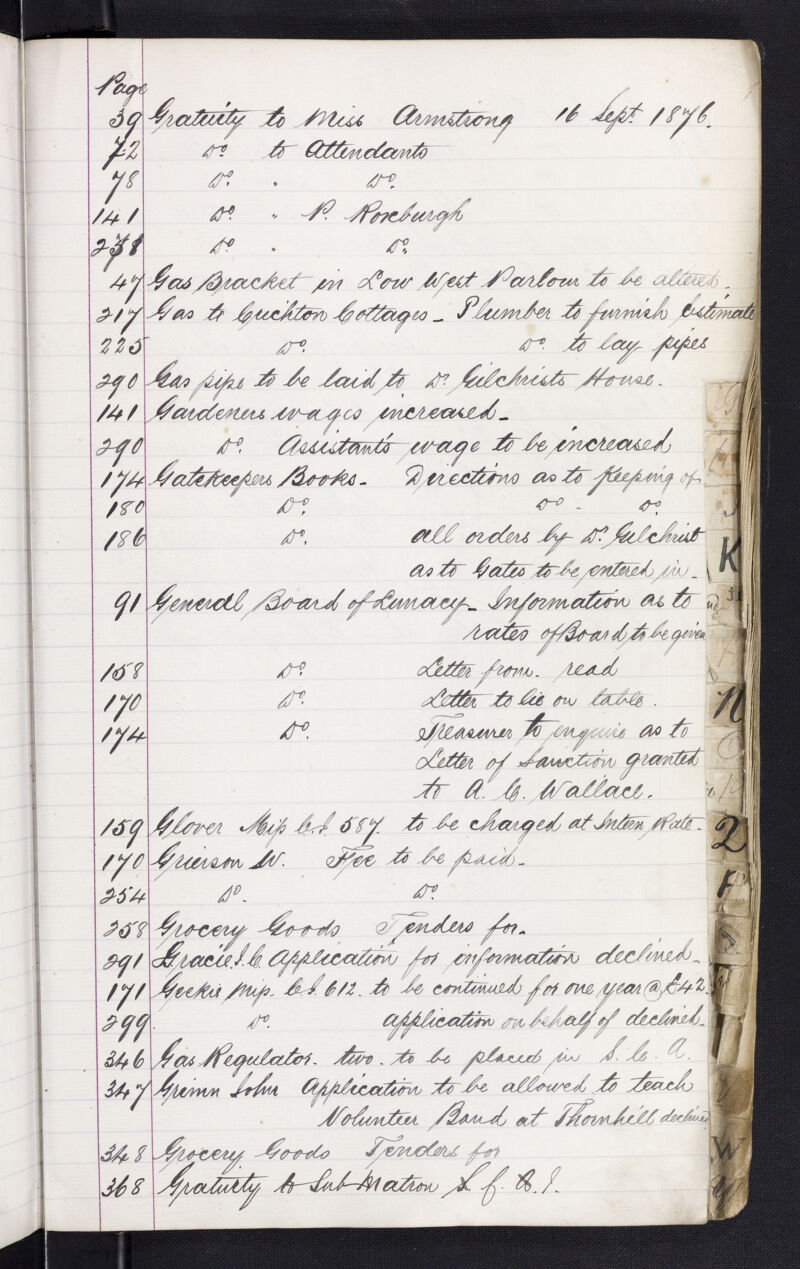 Page
39 Gratuity to Miss Armstrong 16 Sept. 1876.
72 Do. to Attendants
78 Do. " Do.
141 Do. " P. Roxburgh
238 Do. " Do.
47 Gas Bracket in Low West Parlour to be altered.
217 Gas to Crichton Cottages - Plumber to furnish Estimate
225 Do. Do. to lay pipes
290 Gas pipe to be laid to Dr. Gilchrists House.
141 Gardeners wages increased -
290 Do. Assistants wage to be increased
174 Gatekeepers Books - Directions as to Keeping of
180 Do. Do. - Do.
186 Do. all orders by Dr. Gilchrist
as to Gates to be entered in -
91 General Board of Lunacy - Information as to
rates of Board to be given
158 Do. Letter from. read
170 Do. Letter to lie on table.
174 Do. Treasurer to enquire as to
Letter of Sanction granted
to A. C. Wallace.
159 Glover Miss C.I. 587. to be charged at Intern Rate -
170 Grierson W. Fee to be paid -
254 Do. Do.
258 Grocery Goods Tenders for -
291 Gracie J. C. Application for information declined -
171 Geekie Miss. C.I. 612. to be continued for one year @ £42.
299 Do. application on behalf of declined -
346 Gas Regulator. two. to be placed in S. C. A.
347 Grimn John Application to be allowed to teach
Volunteer Band at Thornhill declined
348 Grocery Goods Tenders for
368 Gratuity to Sub Matron
K
N
2
W
Y